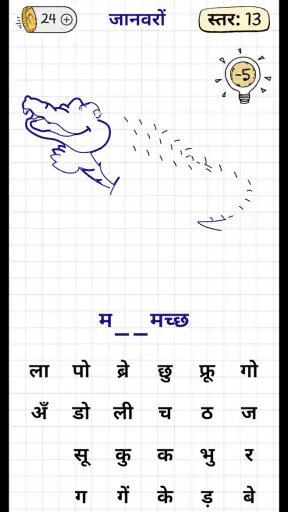 24 जानवरों स्तर: 13
-5
म__मच्छ
ला पो ब्रे छु फ्रू गो
अँ डो ली च ठ ज
सू कु क भु र
ग गें के ड़ बे